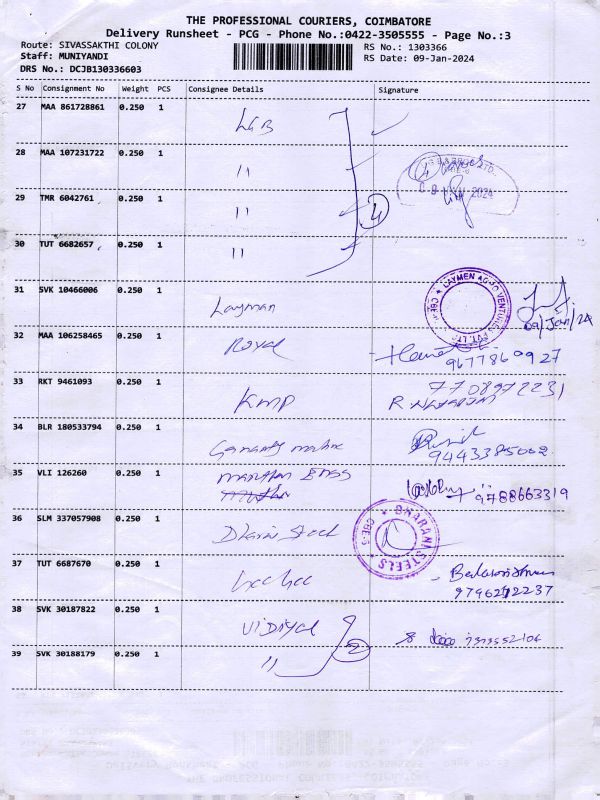 THE PROFESSIONAL COURIERS, COIMBATORE
Delivery Runsheet - PCG - Phone No.:0422-3505555 - Page No.:3
Route: SIVASSAKTHI COLONY
RS No.: 1303366
Staff: MUNIYANDI
RS Date: 09-Jan-2024
DRS No.: DCJB130336603
S No Consignment No Weight PCS Consignee Details Signature
27 MAA 861728861 0.250 1 LGB
28 MAA 107231722 0.250 1 "
29 TMR 6042761 0.250 1 " 4
30 TUT 6682657 0.250 1 "
31 SVK 10466006 0.250 1 Layman
LAYMEN AGRO VENTURES PVT. LTD. CBE
09/Jan/24
32 MAA 106258465 0.250 1 Royal
9677860927
33 RKT 9461093 0.250 1 KMP
7708972231
34 BLR 180533794 0.250 1
9443385002
35 VLI 126260 0.250 1
9788663319
36 SLM 337057908 0.250 1
BHARANI STEELS CBE-5
37 TUT 6687670 0.250 1 bee bee
9796212237
38 SVK 30187822 0.250 1 Vidiyal
39 SVK 30188179 0.250 1 " 2